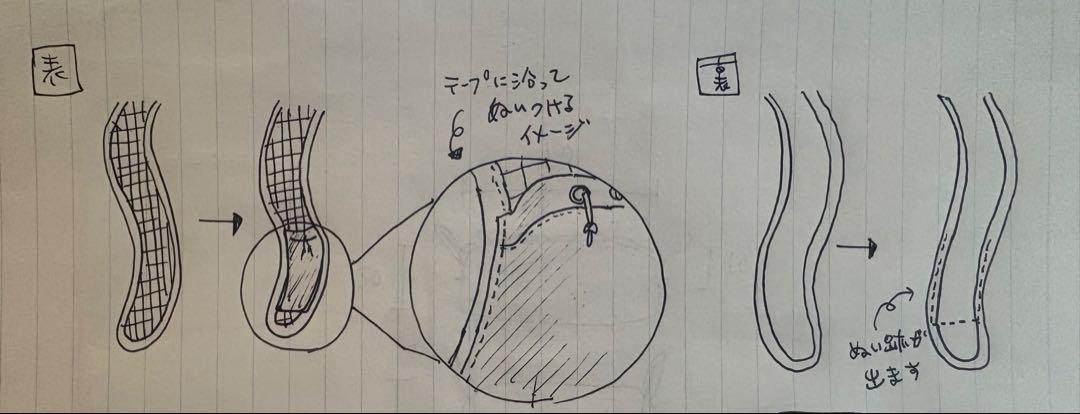 表
テープに沿って
ぬいつける
イメージ
裏
ぬい跡が
出ます